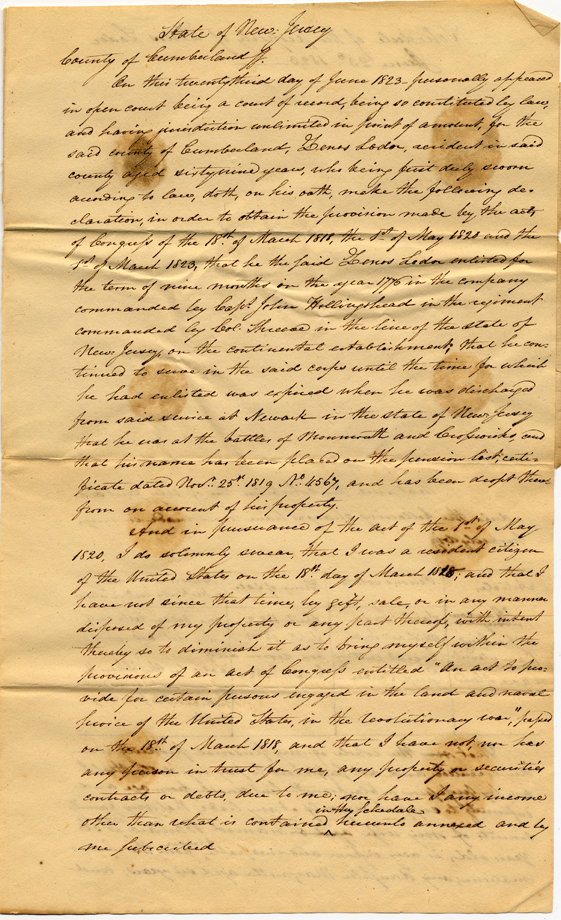 State of New-Jersey
County of Cumberland ss.
On this twentythird day of June 1823 personally appeared
in open court being a court of record, being so constituted by law,
and having jurisdiction unlimited in point of amount, for the
said county of Cumberland, Zenos Lodor, resident in said
county aged sixtynine years, who being first duly sworn
acording to law, doth, on his oath, make the following de-
claration, in order to obtain the provision made by the acts
of Congress of the 18th of March 1818, the 1st of May 1820 and the
1st of March 1823, that he the said Zenos Lodor enlisted for
the term of nine months on the year 1776 in the company
commanded by Capt. John Hollingshead in the regiment
commanded by Col. in the line of the state of
New Jersey, on the continental establishment; that he con-
tinued to serve in the said corps until the time for which
he had enlisted was expired when he was discharged
from said service at Newark in the state of New Jersey
that he was at the battles of Monmouth and Crosswicks, and
that his name has been placed on the pension list, certi-
ficate dated Novr. 25th 1819 No. 4567, and has been dropt there
from on account of his property.
And in pursuance of the act of the 1st of May
1820, I do solemnly swear, that I was a resident citizen
of the United States on the 18th day of March 1818; and that I
have not since that time, by gift, sale, or in any manner
disposed of my property or any part thereof, with intent
thereby so to diminish it as to bring myself within the
provisions of an act of Congress entitled "An act to pro-
vide for certain persons engaged in the land and naval
service of the United States, in the revolutionary war", passed
on the 18th of March 1818, and that I have not, nor has
any person in trust for me, any property or securities
contracts or debts, due to me; nor have I any income
in the Schedule
other than what is contained hereunto annexed and by
me subscribed